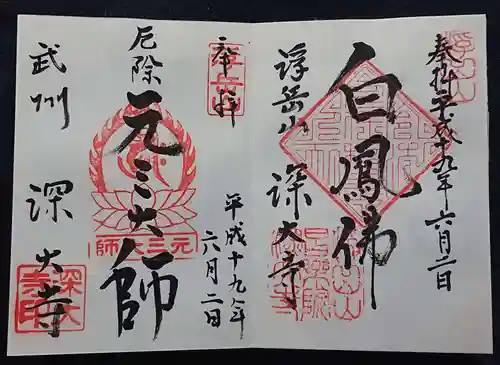 奉拝 平成十九年 六月二日
白鳳佛
浮岳山 深大寺
奉拝
平成十九年
六月二日
厄除 元三大師
元三大師
武州 深大寺
深大寺印